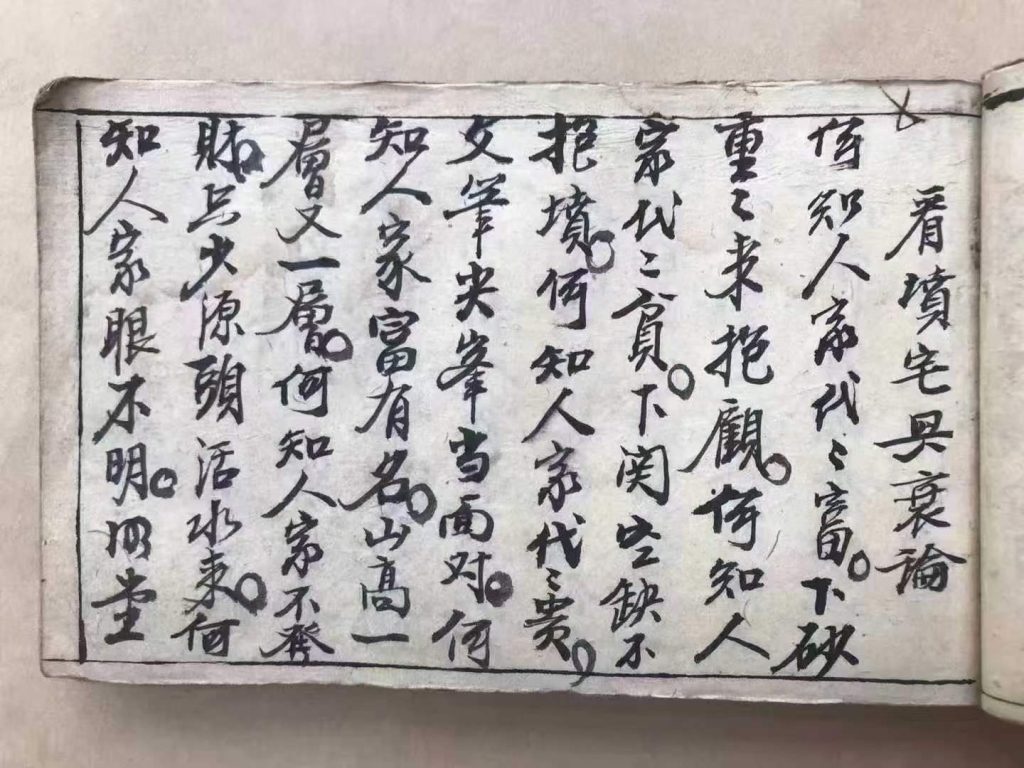 看墳宅興衰論
何知人家代〻富。下砂
重〻来抱顧。何知人
家代〻貧。下関空缺不
抱墳。何知人家代〻貴。
文筆尖峯当面对。何
知人家富有名。山高一
層又一層。何知人家不發
財。只少源頭活水来。何
知人家眼不明。明堂